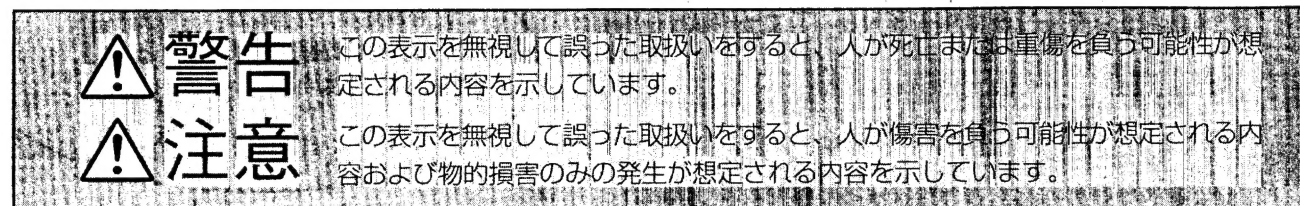 警告
この表示を無視して誤った取扱いをすると、人が死亡または重傷を負う可能性が想
定される内容を示しています。
注意
この表示を無視して誤った取扱いをすると、人が傷害を負う可能性が想定される内
容および物的損害のみの発生が想定される内容を示しています。